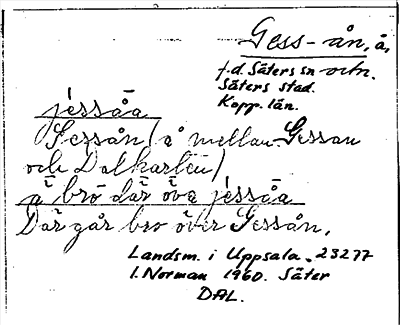 Gess-ån, å,
f.d. Säters sn och n.
Säters stad.
Kopp. län.
jéssåa
Gessån (å mellan Gessan
och Dalkarlen)
ä̀ brō dār övẹ jéssåa
Där går bro över Gessån.
Landsm. i Uppsala. 23277
I. Norman 1960. Säter
DAL.